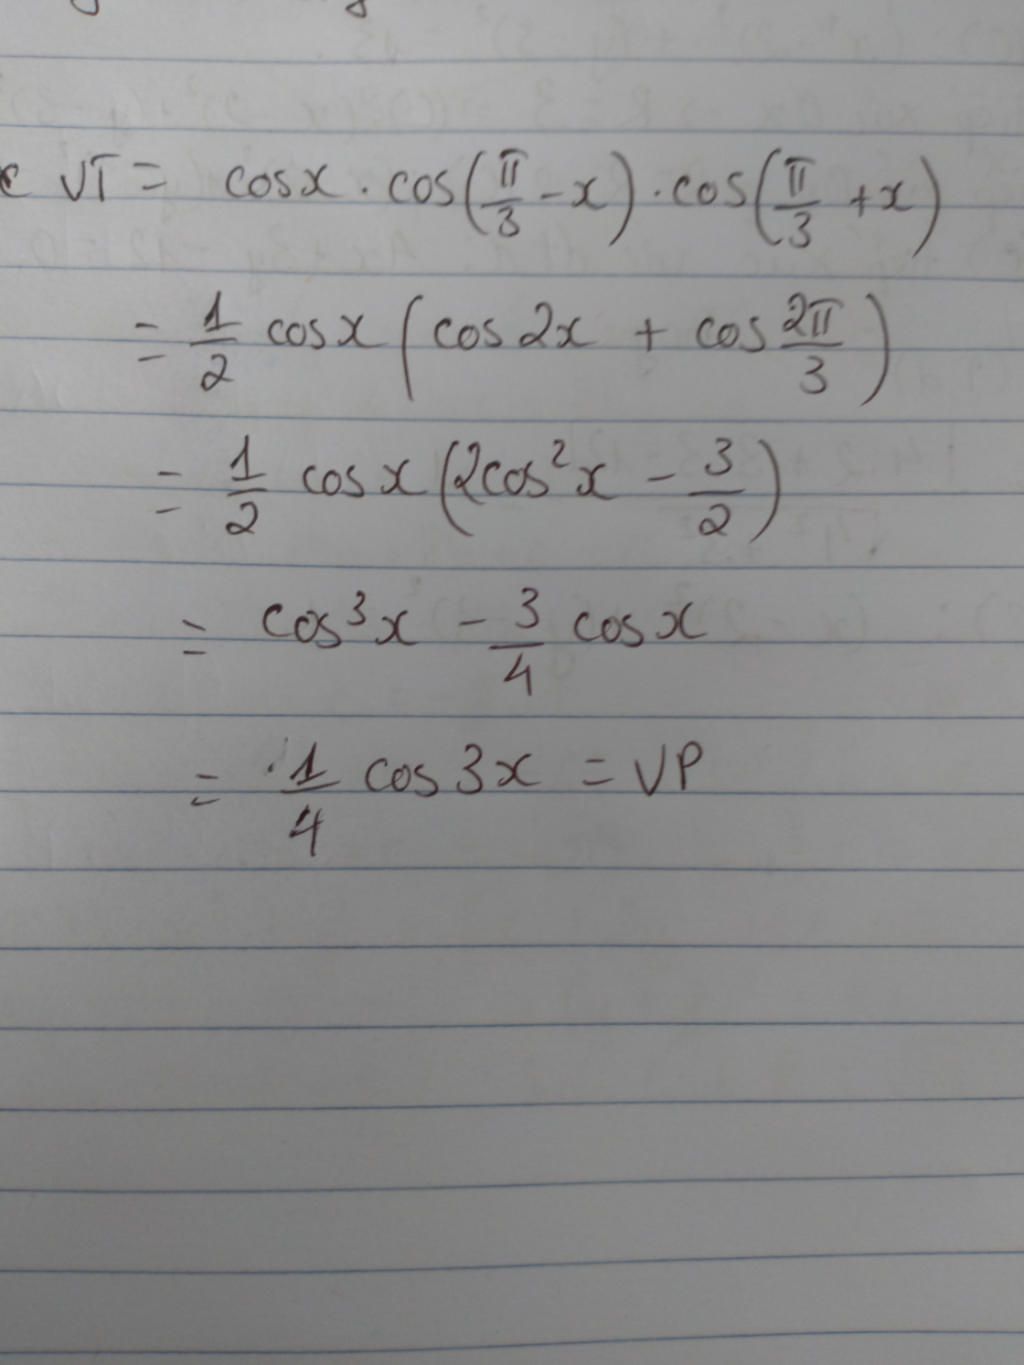 VT = cosx . cos(π/3 - x) . cos(π/3 + x)
= 1/2 cosx (cos2x + cos 2π/3)
= 1/2 cosx (2cos²x - 3/2)
= cos³x - 3/4 cosx
= 1/4 cos3x = VP